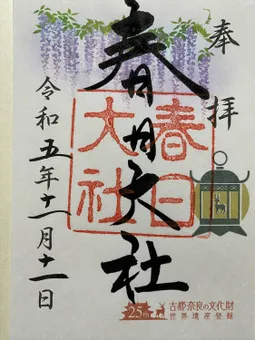 奉拝
春日大社
春日大社
令和五年十一月十一日
25th
古都奈良の文化財
世界遺産登録